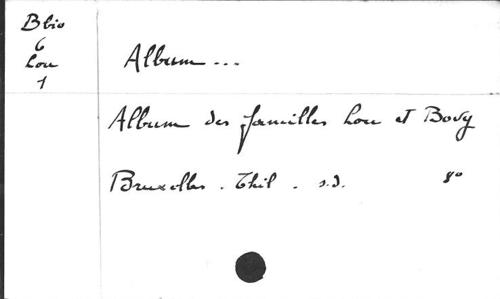 B bio
6
Lou
1
Album ...
Album des familles Lou et Bovy
Bruxelles . Thil . s.d. 8°